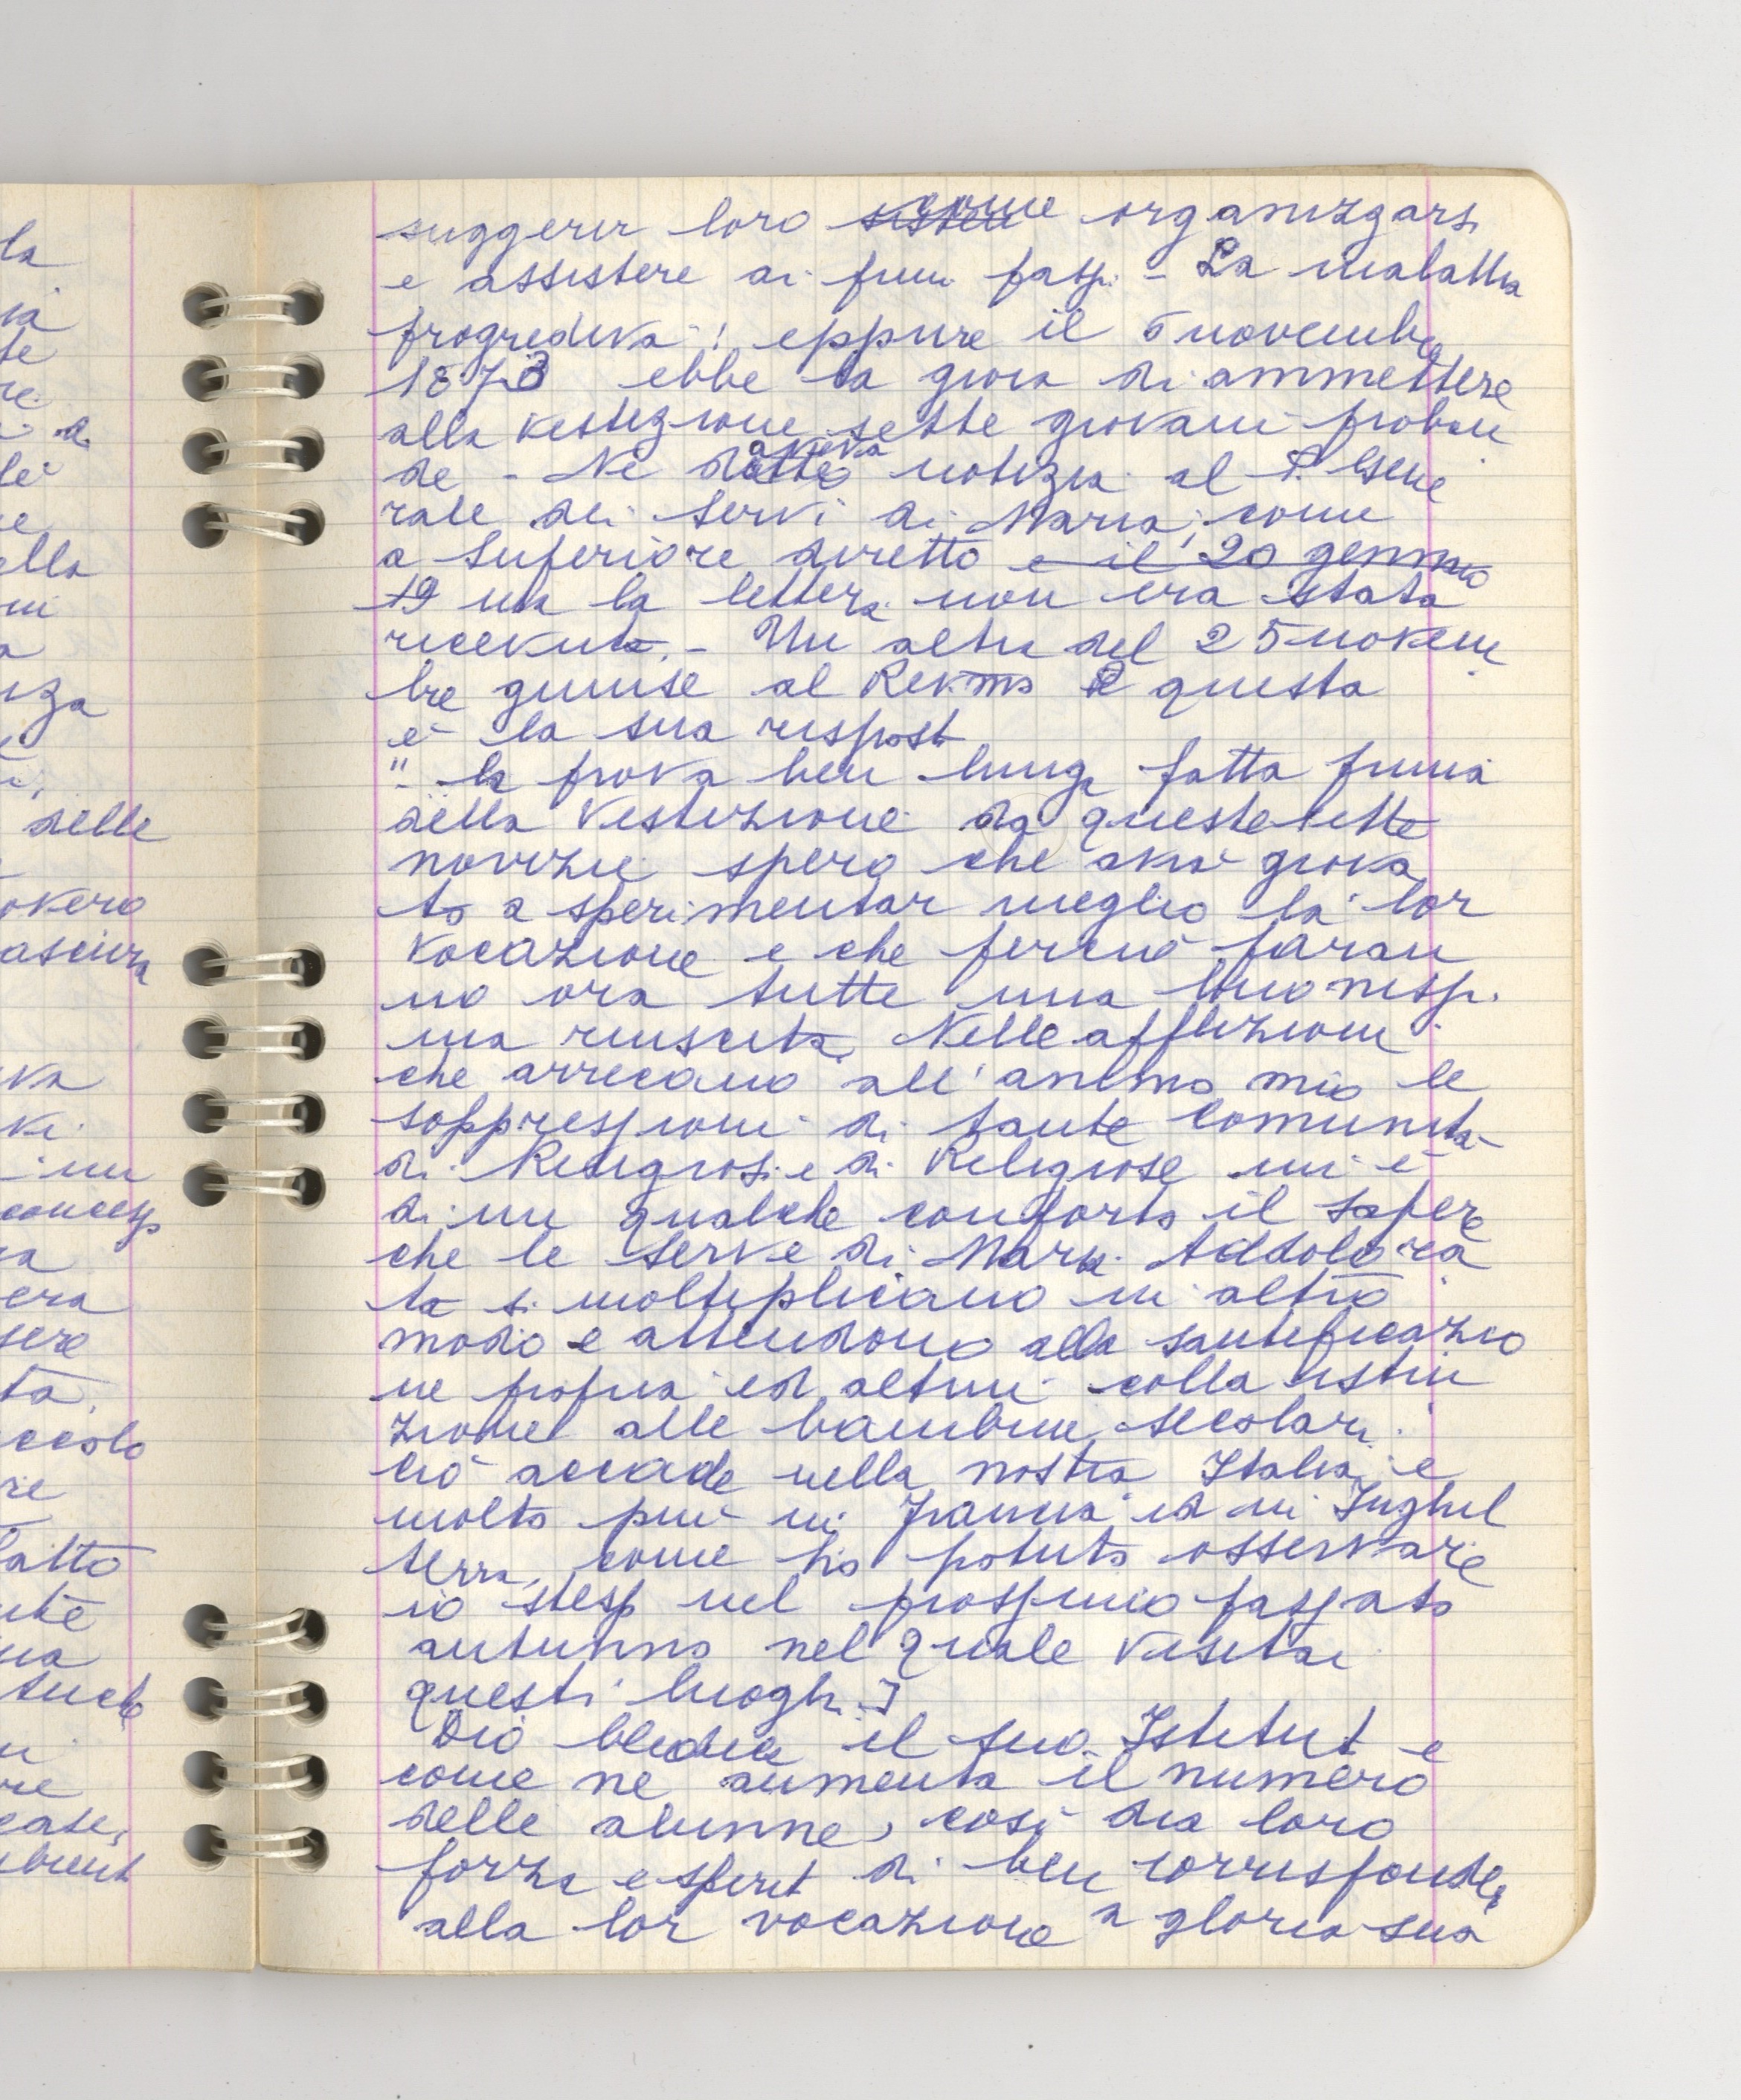 suggerir loro come organizzarsi
e assistere ai primi passi - La malattia
progrediva! eppure il 5 novembre
1873 ebbe la gioia di ammettere
alla vestizione sette giovani proban
de - Ne aveva notizia al P. Gene
rale dei Servi di Maria, come
a Superiore diretto e il 20 gennaio
19 ma la lettera non era stata
ricevuta. - Un altra del 25 novem
bre giunse al Rev.mo e questa
è la sua risposta
" la prova ben lunga fatta prima
della Vestizione da queste sette
novizie spero che avrà giova
to a sperimentar meglio la lor
vocazione e che perciò faran
no ora tutte una buonissi
ma riuscita. Nelle afflizioni
che arrecano all'animo mio le
soppressioni di tante Comunità
di Religiosi e di Religiose mi è
di un qualche conforto il sapere
che le Serve di Maria Addolora
ta si moltiplicano in altro
modo e attendono alla santificazio
ne propria ed altrui colla istru
zione alle bambine secolari.
Ciò accade nella nostra Italia, e
molto più in Francia ed in Inghil
terra, come ho potuto osservare
io stesso nel prossimo passato
autunno nel quale visitai
questi luoghi.]
Dio benedica il suo Istituto e
come ne aumenta il numero
delle alunne, così dia loro
forza e spirito di ben corrisponde
alla lor vocazione a gloria sua